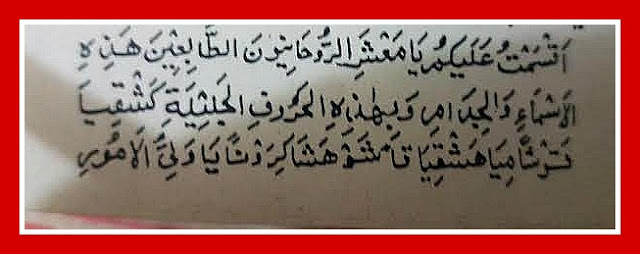 اَقْسَمْتُ عَلَيْكُمْ يَا مَعْشَرَ الرُّوحَانِيُونَ الطَّائِعِيْنَ هَذِهِ
الْاَسْمَاءِ وَالْخِدَامِ وَبِهٰذِهِ الْحُرُوفِ الْجَلْثِيَةِ كَشْقِيَا
هَشْقِيَا شَاكِرَوْثَا يَا وَلِيَّ الْاُمُورِ